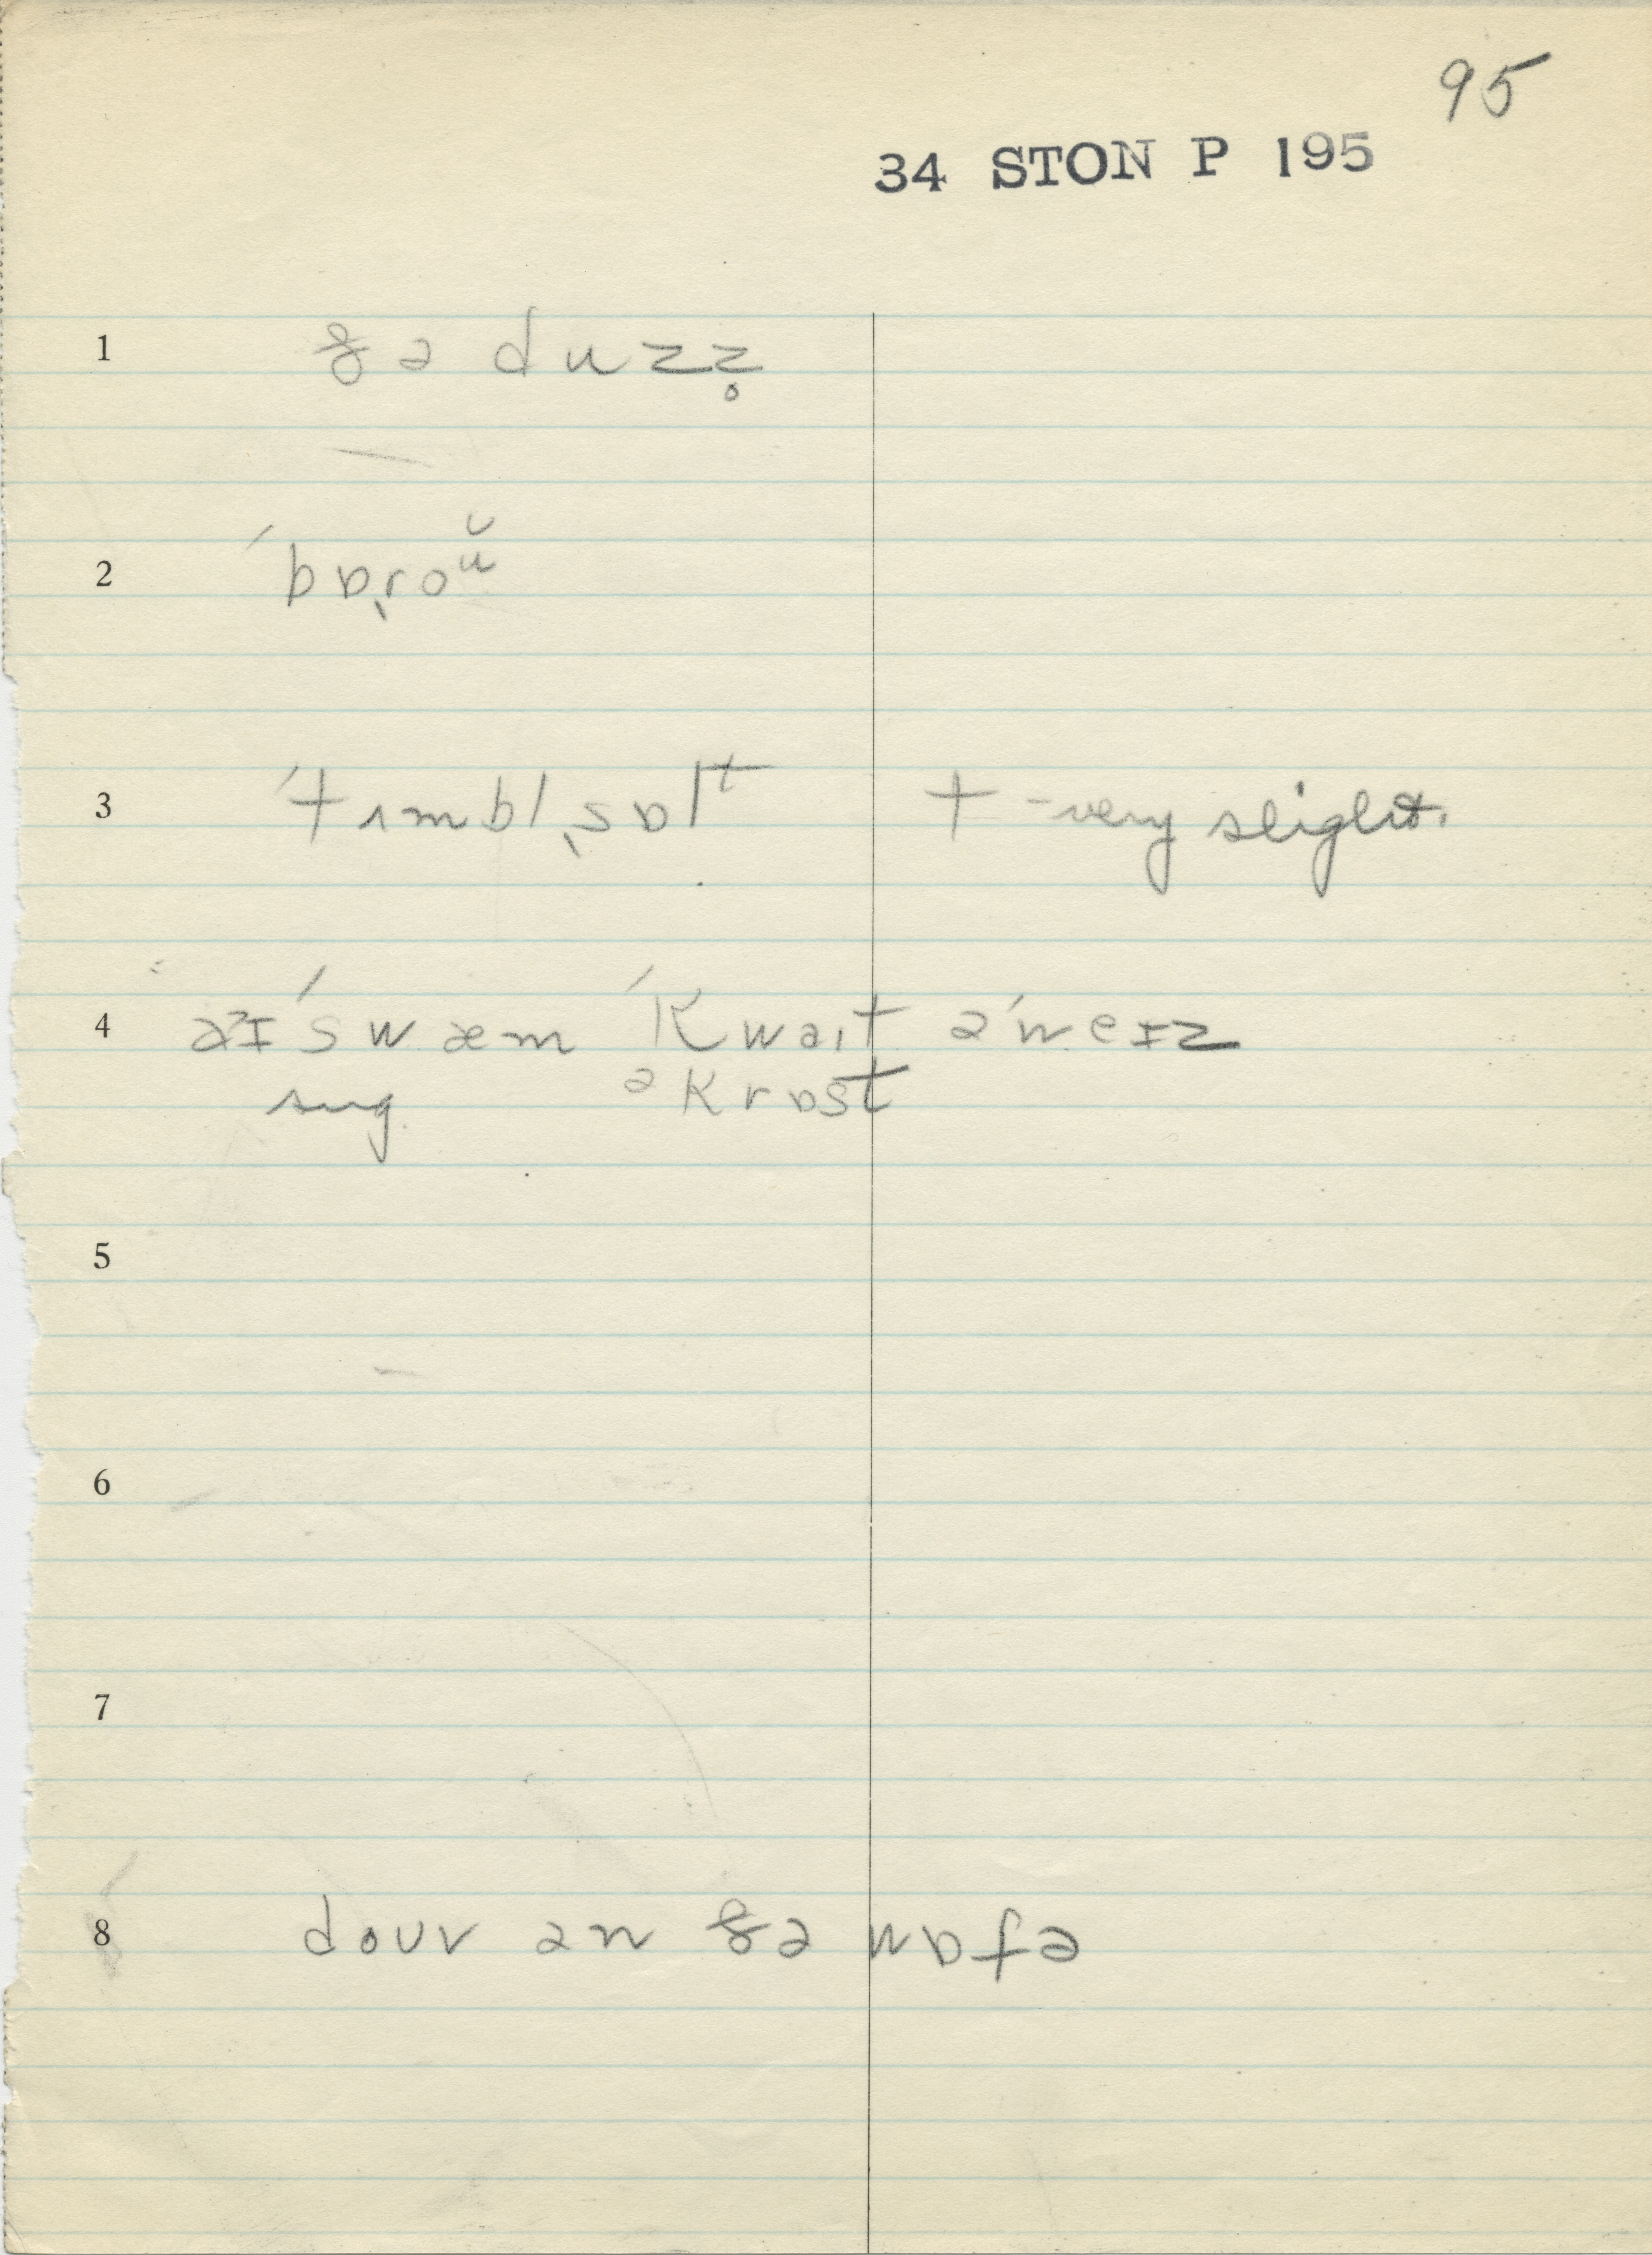 95
34 STON P 195
1 ðə duzz̥
2 ˈbɒˌroʊ̆
3 ˈtɪmblˌsɒlᵗ t - very slight.
4 əˀɪ ˈswæm ˈkwaɪt əˈweɪz
sug. əkrɒst
5
6
7
8 doʊr ən ðə wɒfə